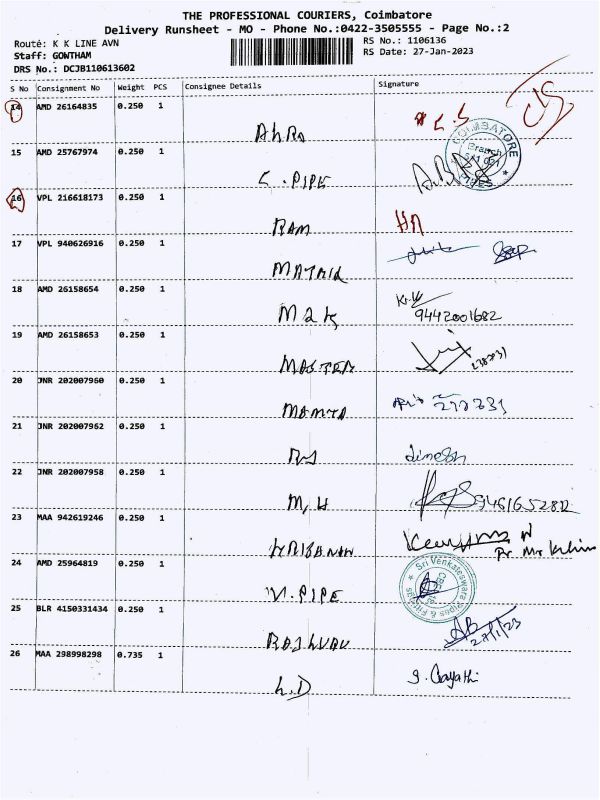 THE PROFESSIONAL COURIERS, Coimbatore
Delivery Runsheet - MO - Phone No.:0422-3505555 - Page No.:2
Route: K K LINE AVN RS No.: 1106136
Staff: GOWTHAM RS Date: 27-Jan-2023
DRS No.: DCJB110613602
S No Consignment No Weight PCS Consignee Details Signature
14 AMD 26164835 0.250 1
COIMBATORE
Branch
PIPES
15 AMD 25767974 0.250 1
C. PIPE
16 VPL 216618173 0.250 1
RAM
17 VPL 940626916 0.250 1
18 AMD 26158654 0.250 1
M2K 9442001682
19 AMD 26158653 0.250 1
MASTER
20 JNR 202007960 0.250 1
MAMTA
21 JNR 202007962 0.250 1
dinesh
22 JNR 202007958 0.250 1
M, H
23 MAA 942619246 0.250 1
24 AMD 25964819 0.250 1
Sri Venkateswara Pipes & Fittings
V. PIPE
25 BLR 4150331434 0.250 1
27/1/23
26 MAA 298998298 0.735 1
L.D g. Gayathi